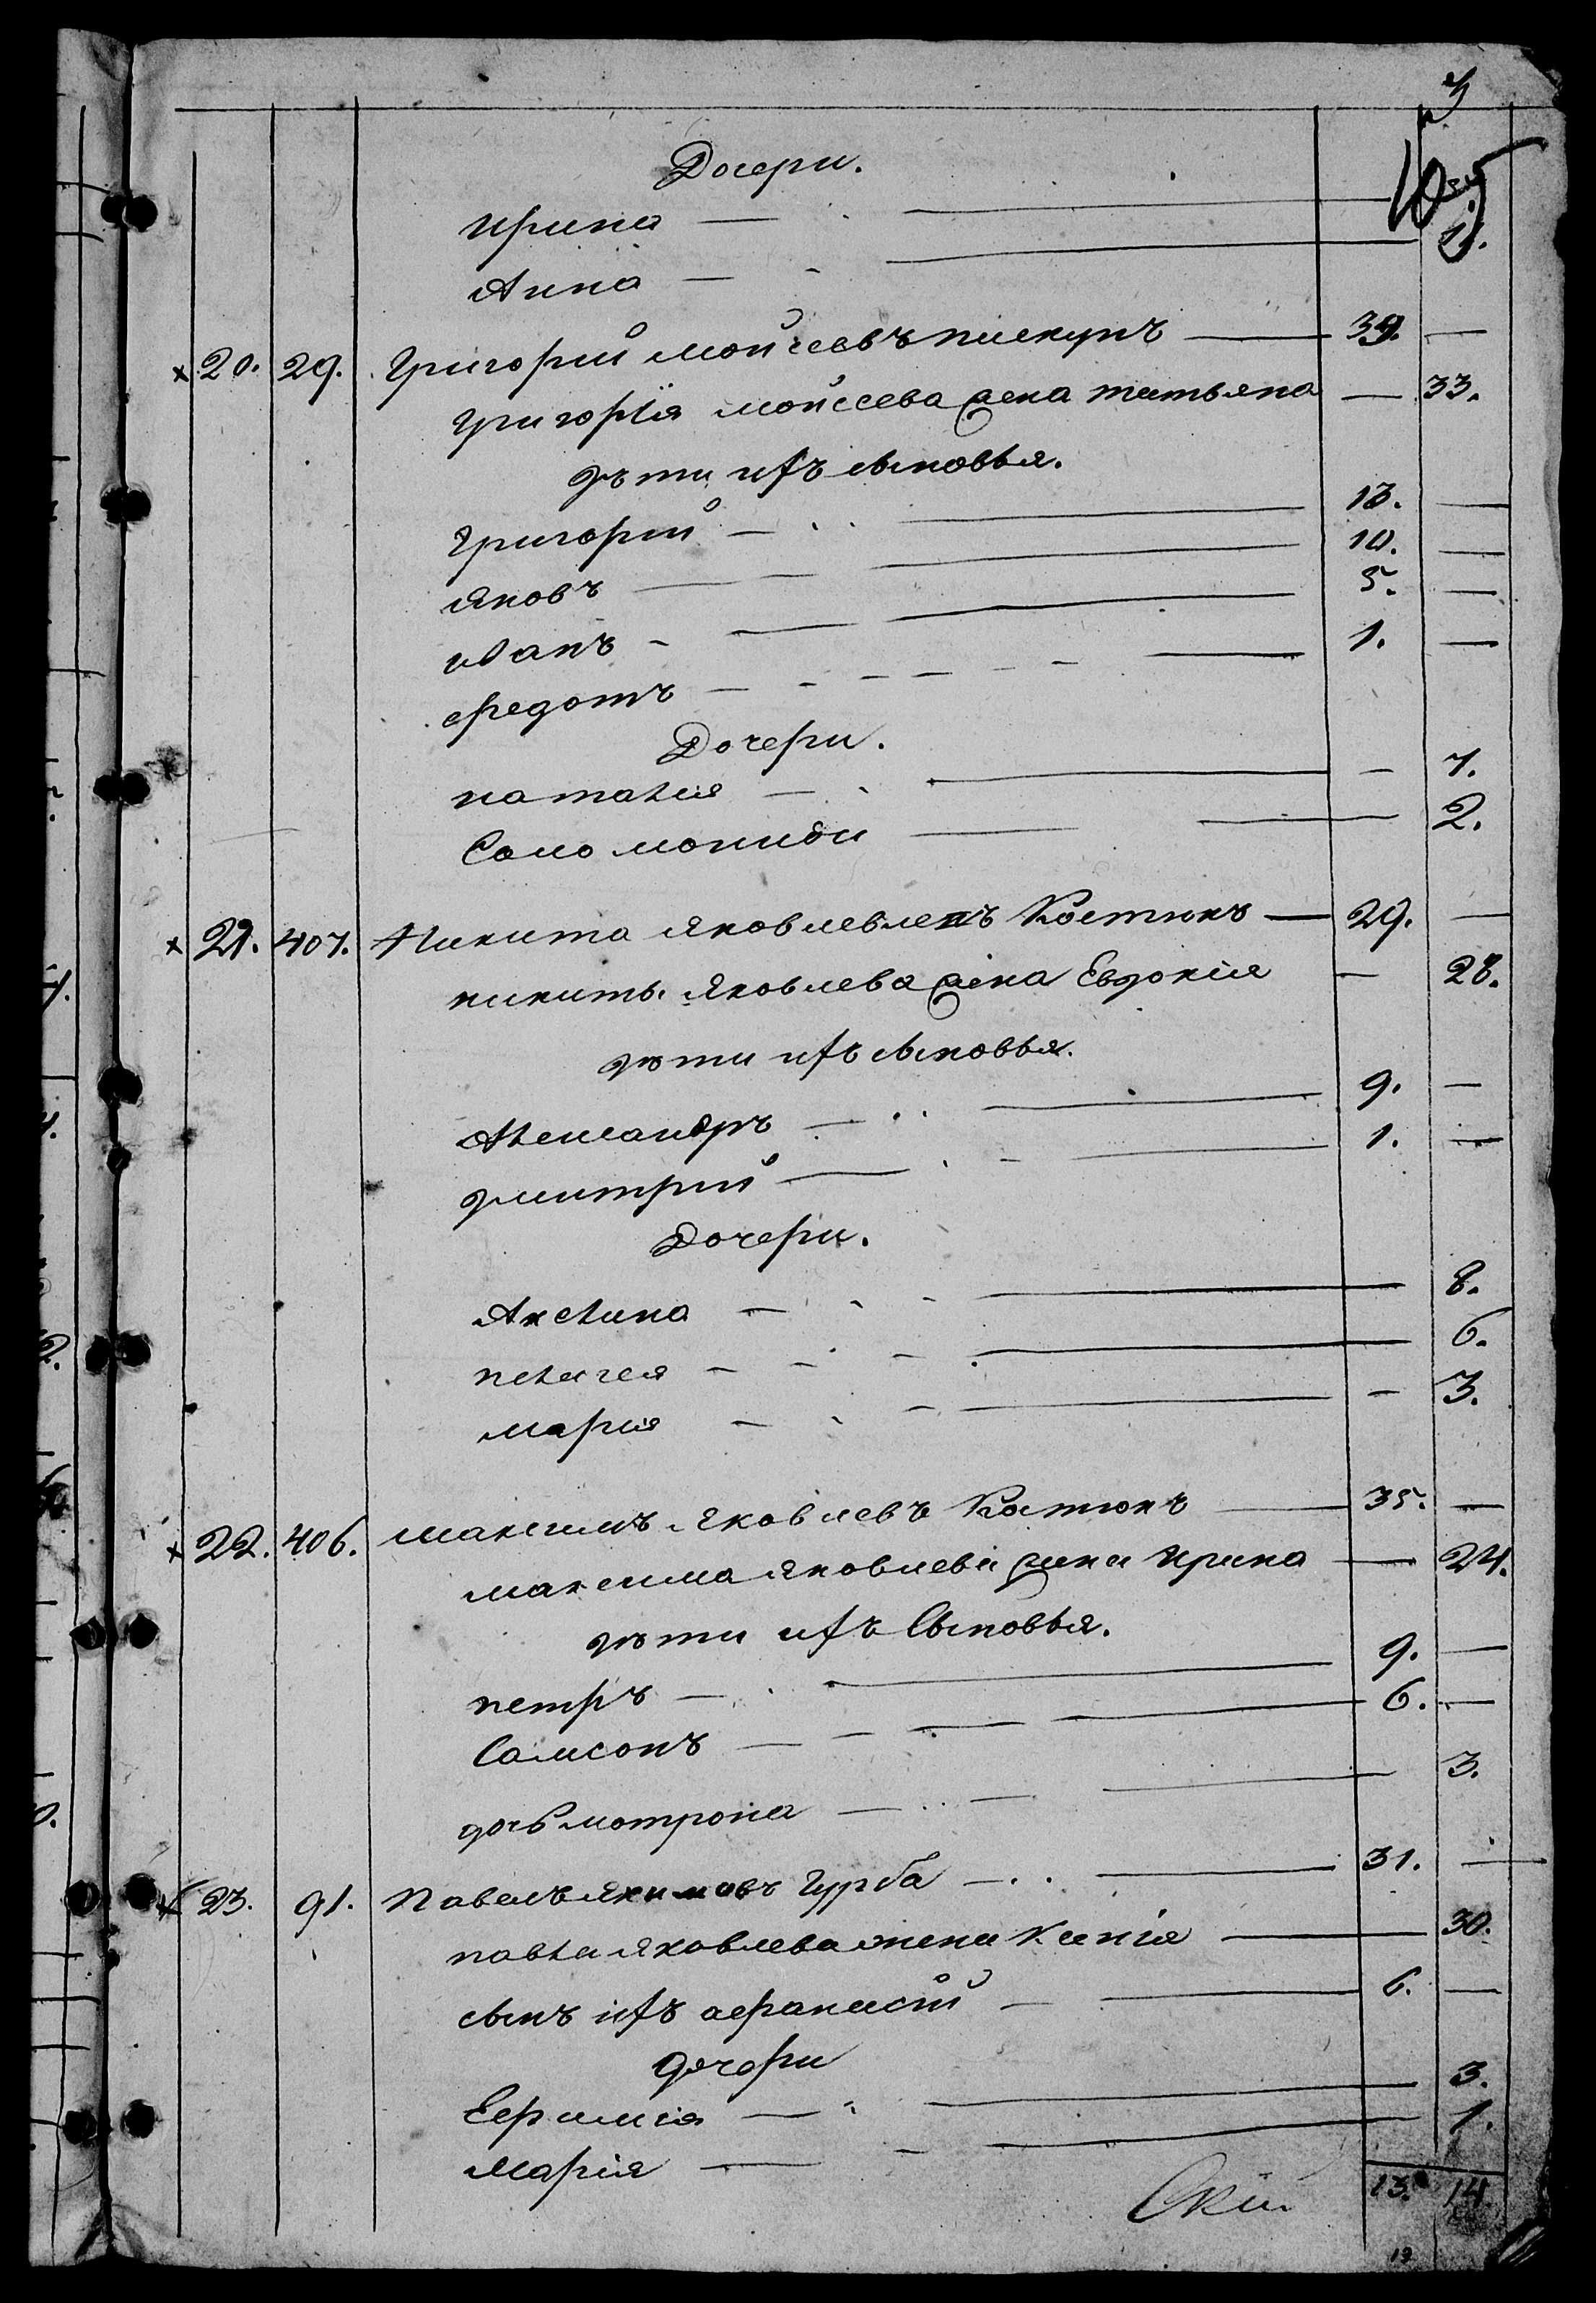 3
Дочери.
Ирина —
Анна — 1.
× 20. 29. Григорій Мойсеевъ — 39. —
Григорія Мойсеева жена Татьяна — 33.
дѣти ихъ сыновья.
Григорій — 13. —
Яковъ — 10. —
Иванъ — 5. —
Федотъ — 1. —
Дочери.
Наталія — 7.
Соломонида — 2.
× 21. 407. Никита Яковлевъ Костюкъ — 29. —
Никиты Яковлева жена Евдокія — 28.
дѣти ихъ сыновья.
Александръ — 9. —
Дмитрій — 1. —
Дочери.
Акслина — 8.
Пелагея — 6.
Марія — 3.
× 22. 406. Максимъ Яковлевъ Костюкъ — 35. —
Максима Яковлева жена Ирина — 24.
дѣти ихъ Сыновья.
Петръ — 9. —
Самсонъ — 6. —
дочь Мотрона — 3.
× 23. 91. Павелъ Якимовъ Гурба — 31. —
Павла Яковлева жена Ксенія — 30.
сынъ ихъ Афанасій — 6. —
дочери
Ефимія — 3.
Марія — 1.
13. 14.